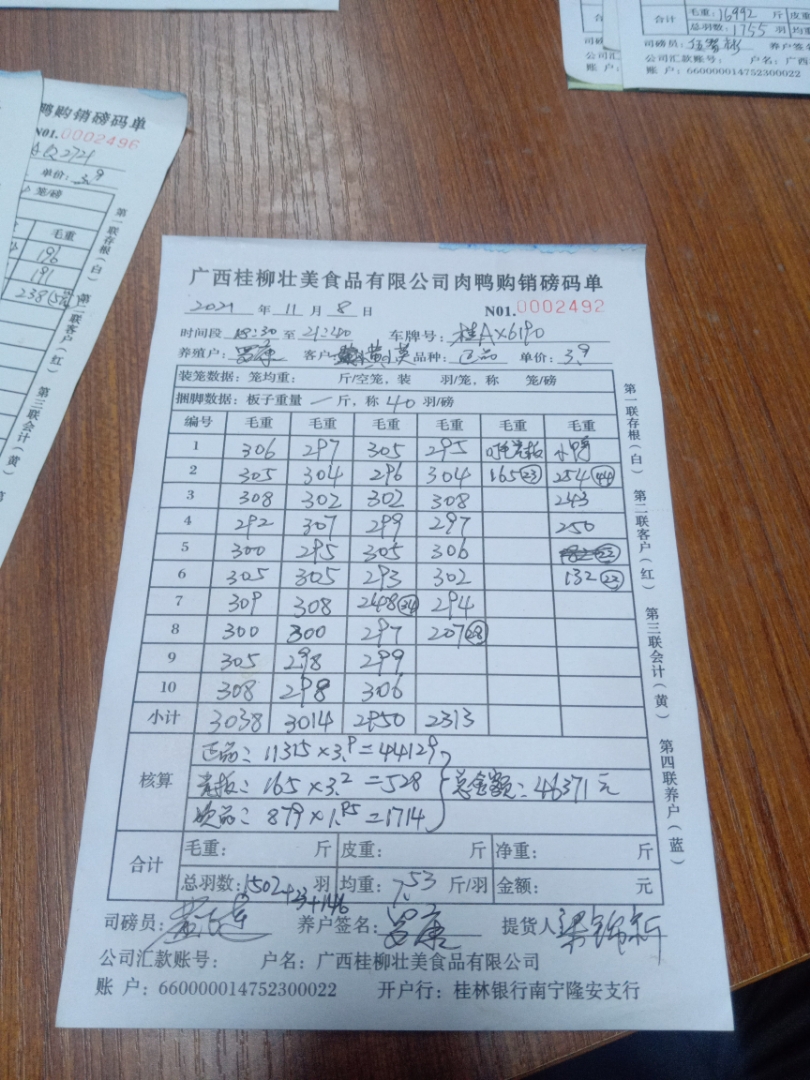 毛重：16992 斤 皮重
合计 总羽数：1755 羽 均重
司磅员： 养户签名
公司汇款账号： 户名：广西
账 户：660000014752300022
鸭购销磅码单
N01.0002496
AQ2721
单价：3.9
笼/磅
毛重
196
191
238
第一联存根（白）
第二联客户（红）
第三联会计（黄）
广西桂柳壮美食品有限公司肉鸭购销磅码单
2021 年 11 月 8 日 N01.0002492
时间段 18:30 至 21:40 车牌号：桂AX6190
养殖户： 客户： 品种：正品 单价：3.9
装笼数据：笼均重： 斤/空笼，装 羽/笼，称 笼/磅
捆脚数据：板子重量 一 斤，称 40 羽/磅
编号 毛重 毛重 毛重 毛重 毛重 毛重
1 306 297 305 295
2 305 304 296 304 165 23 254 44
3 308 302 302 308 243
4 292 307 299 297 250
5 300 295 305 306
6 305 305 293 302 132 22
7 309 308 248 34 294
8 300 300 297 207 28
9 305 298 299
10 308 298 306
小计 3038 3014 2950 2313
核算
正品：11315×3.9=44129
165×3.2=528 总金额：46371元
次品：879×1.95=1714
合计
毛重： 斤 皮重： 斤 净重： 斤
总羽数：1502+23+146 羽 均重：7.53 斤/羽 金额： 元
司磅员： 养户签名： 提货人
公司汇款账号： 户名：广西桂柳壮美食品有限公司
账 户：660000014752300022 开户行：桂林银行南宁隆安支行
第一联存根（白）
第二联客户（红）
第三联会计（黄）
第四联养户（蓝）